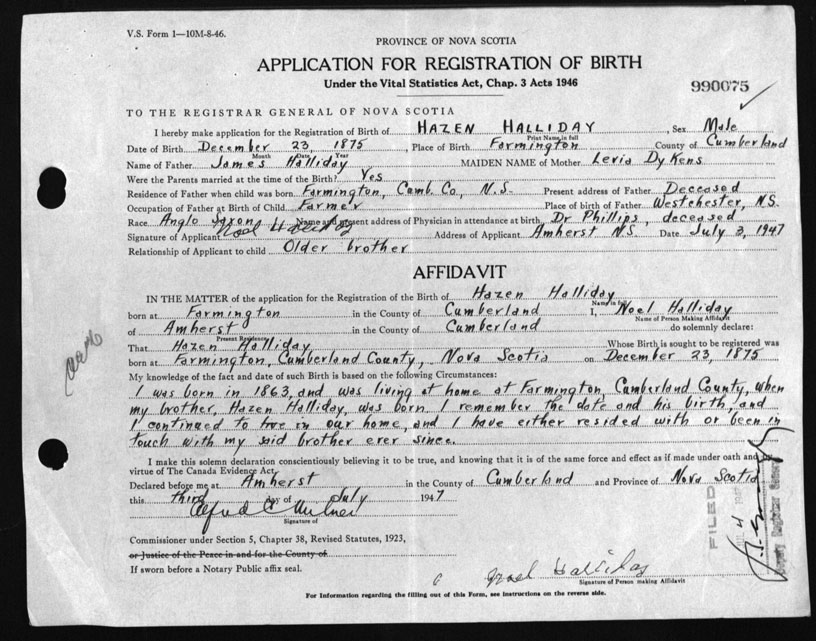 V.S. Form 1—10M-8-46.
PROVINCE OF NOVA SCOTIA
APPLICATION FOR REGISTRATION OF BIRTH
Under the Vital Statistics Act, Chap. 3 Acts 1946
990075
TO THE REGISTRAR GENERAL OF NOVA SCOTIA
I hereby make application for the Registration of Birth of HAZEN HALLIDAY, Sex Male
Print Name in full
Date of Birth December 23, 1875, Place of Birth Farmington County of Cumberland
Month Date Year
Name of Father James Halliday MAIDEN NAME of Mother Levia Dykens
Were the Parents married at the time of the Birth? Yes
Residence of Father when child was born Farmington, Cumb. Co, N.S. Present address of Father Deceased
Occupation of Father at Birth of Child Farmer Place of birth of Father Westchester, N.S.
Race Anglo Saxon Name and present address of Physician in attendance at birth Dr Phillips, deceased
Signature of Applicant Noel Halliday Address of Applicant Amherst N.S. Date July 3, 1947
Relationship of Applicant to child Older brother
AFFIDAVIT
IN THE MATTER of the application for the Registration of the Birth of Hazen Halliday
Name in full
born at Farmington in the County of Cumberland I, Noel Halliday
Name of Person Making Affidavit
of Amherst in the County of Cumberland do solemnly declare:
Present Residence
That Hazen Halliday Whose Birth is sought to be registered was
born at Farmington, Cumberland County, Nova Scotia on December 23, 1875
My knowledge of the fact and date of such Birth is based on the following Circumstances:
I was born in 1863, and was living at home at Farmington, Cumberland County, when
my brother, Hazen Halliday, was born. I remember the date and his birth, and
I continued to live in our home, and I have either resided with or been in
touch with my said brother ever since.
I make this solemn declaration conscientiously believing it to be true, and knowing that it is of the same force and effect as if made under oath and by
virtue of The Canada Evidence Act.
Declared before me at Amherst in the County of Cumberland and Province of Nova Scotia
this third day of July 1947
Signature of
Commissioner under Section 5, Chapter 38, Revised Statutes, 1923,
or Justice of the Peace in and for the County of
If sworn before a Notary Public affix seal.
Noel Halliday
Signature of Person making Affidavit
For Information regarding the filling out of this Form, see Instructions on the reverse side.
FILED
Deputy Registrar General